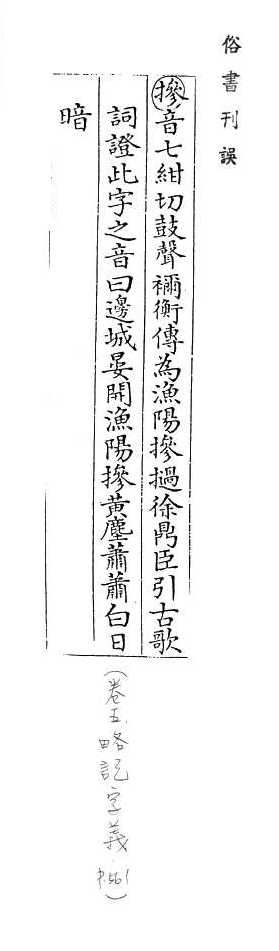 俗書刊誤
摻音七紺切鼓聲禰衡傳為漁陽摻撾徐鼎臣引古歌
詞證此字之音曰邊城晏開漁陽摻黃塵蕭蕭白日
暗
(卷五.略記字義.P.561)